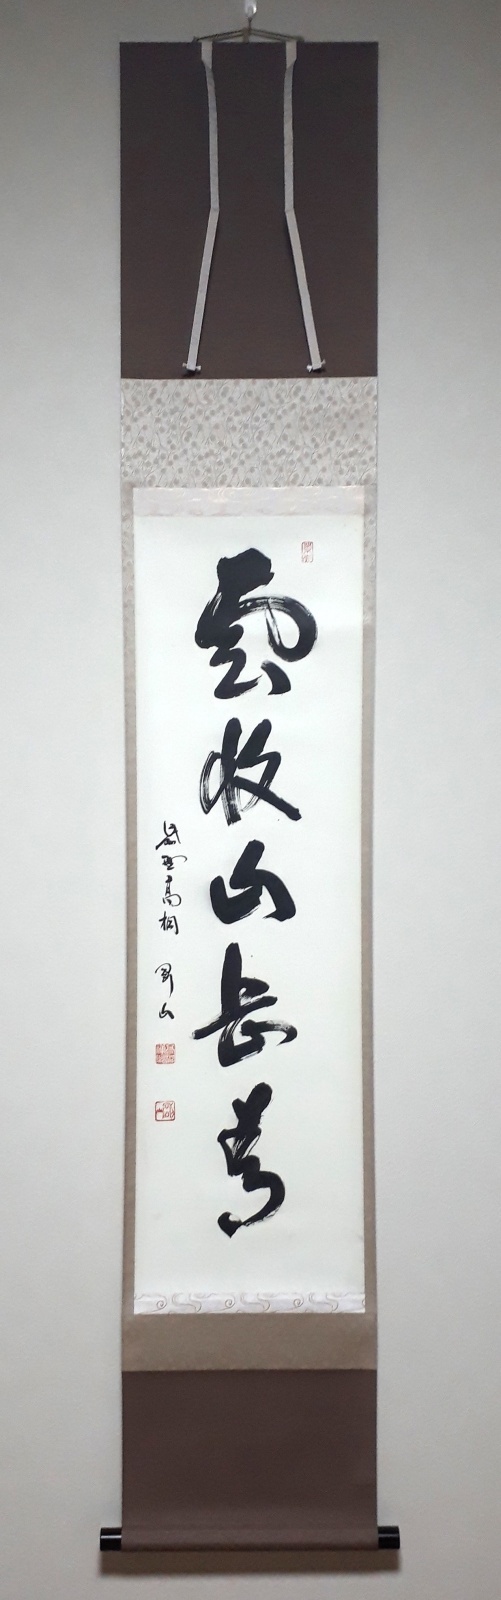 雲收山岳青
紫野高桐 剛山